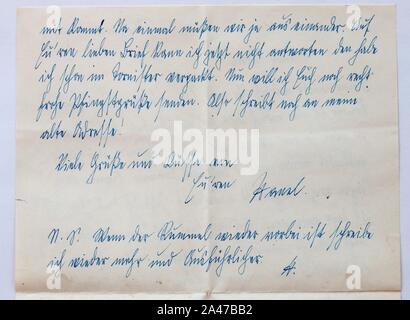 mit kommt. Na einmal müßen wir ja aus einander. Auf
Eu'ren lieben Brief kann ich jetzt nicht antworten den habe
ich schon im Tornister verpackt. Nun will ich Euch noch recht
frohe Pfingstgrüße senden. Also schreibt noch an meine
alte Adresse!
Viele Grüße und Küsse von
Eu'ren
N. S. Wenn der Rummel wieder vorbei ist schreibe
ich wieder mehr und Ausführlicher.
alamy
Image ID: 2A47BB2
www.alamy.com